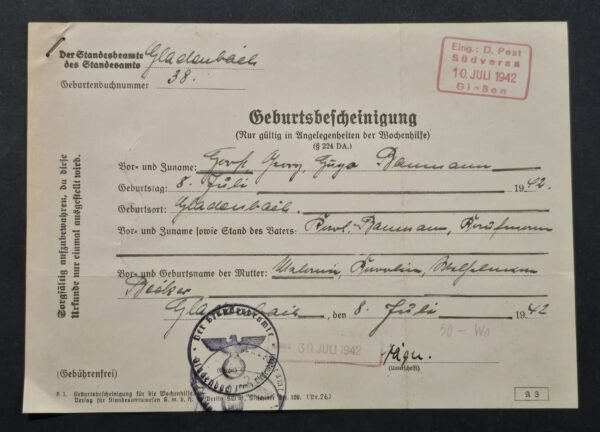 Der Standesbeamte
des Standesamts Gladenbach
Geburtenbuchnummer 38.
Eing.: D. Post
Südversa
10. JULI 1942
Gießen
Geburtsbescheinigung
(Nur gültig in Angelegenheiten der Wochenhilfe)
(§ 224 DA.)
Vor- und Zuname: Horst Georg Hugo Baumann
Geburtstag: 8. Juli 1942.
Geburtsort: Gladenbach.
Vor- und Zuname sowie Stand des Vaters: Karl Baumann, Kaufmann
Vor- und Geburtsname der Mutter: Karolin,
Becker
Gladenbach, den 8. Juli 1942
Der Standesbeamte
30. JULI 1942
(Unterschrift)
(Gebührenfrei)
Sorgfältig aufzubewahren, da diese
Urkunde nur einmal ausgestellt wird.
Geburtsbescheinigung für die Wochenhilfe
Verlag für Standesamtswesen G. m. b. H. Berlin SW
A 3